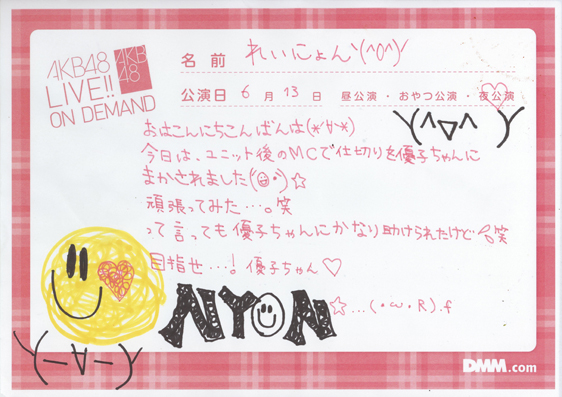 AKB48
LIVE!!
ON DEMAND
AKB
48
名前 れいにょん\(^o^)/
公演日 6月13日 昼公演・おやつ公演・夜公演
\(^▽^)/
おはこんにちこんばんは(*'∀'*)
今日は、ユニット後のMCで仕切りを優子ちゃんに
まかされました(😁)☆
頑張ってみた…。笑
って言っても優子ちゃんにかなり助けられたけど 笑
目指せ…!優子ちゃん♡
NYON☆...(・ω・R).f
\(-∀-)/
DMM.com